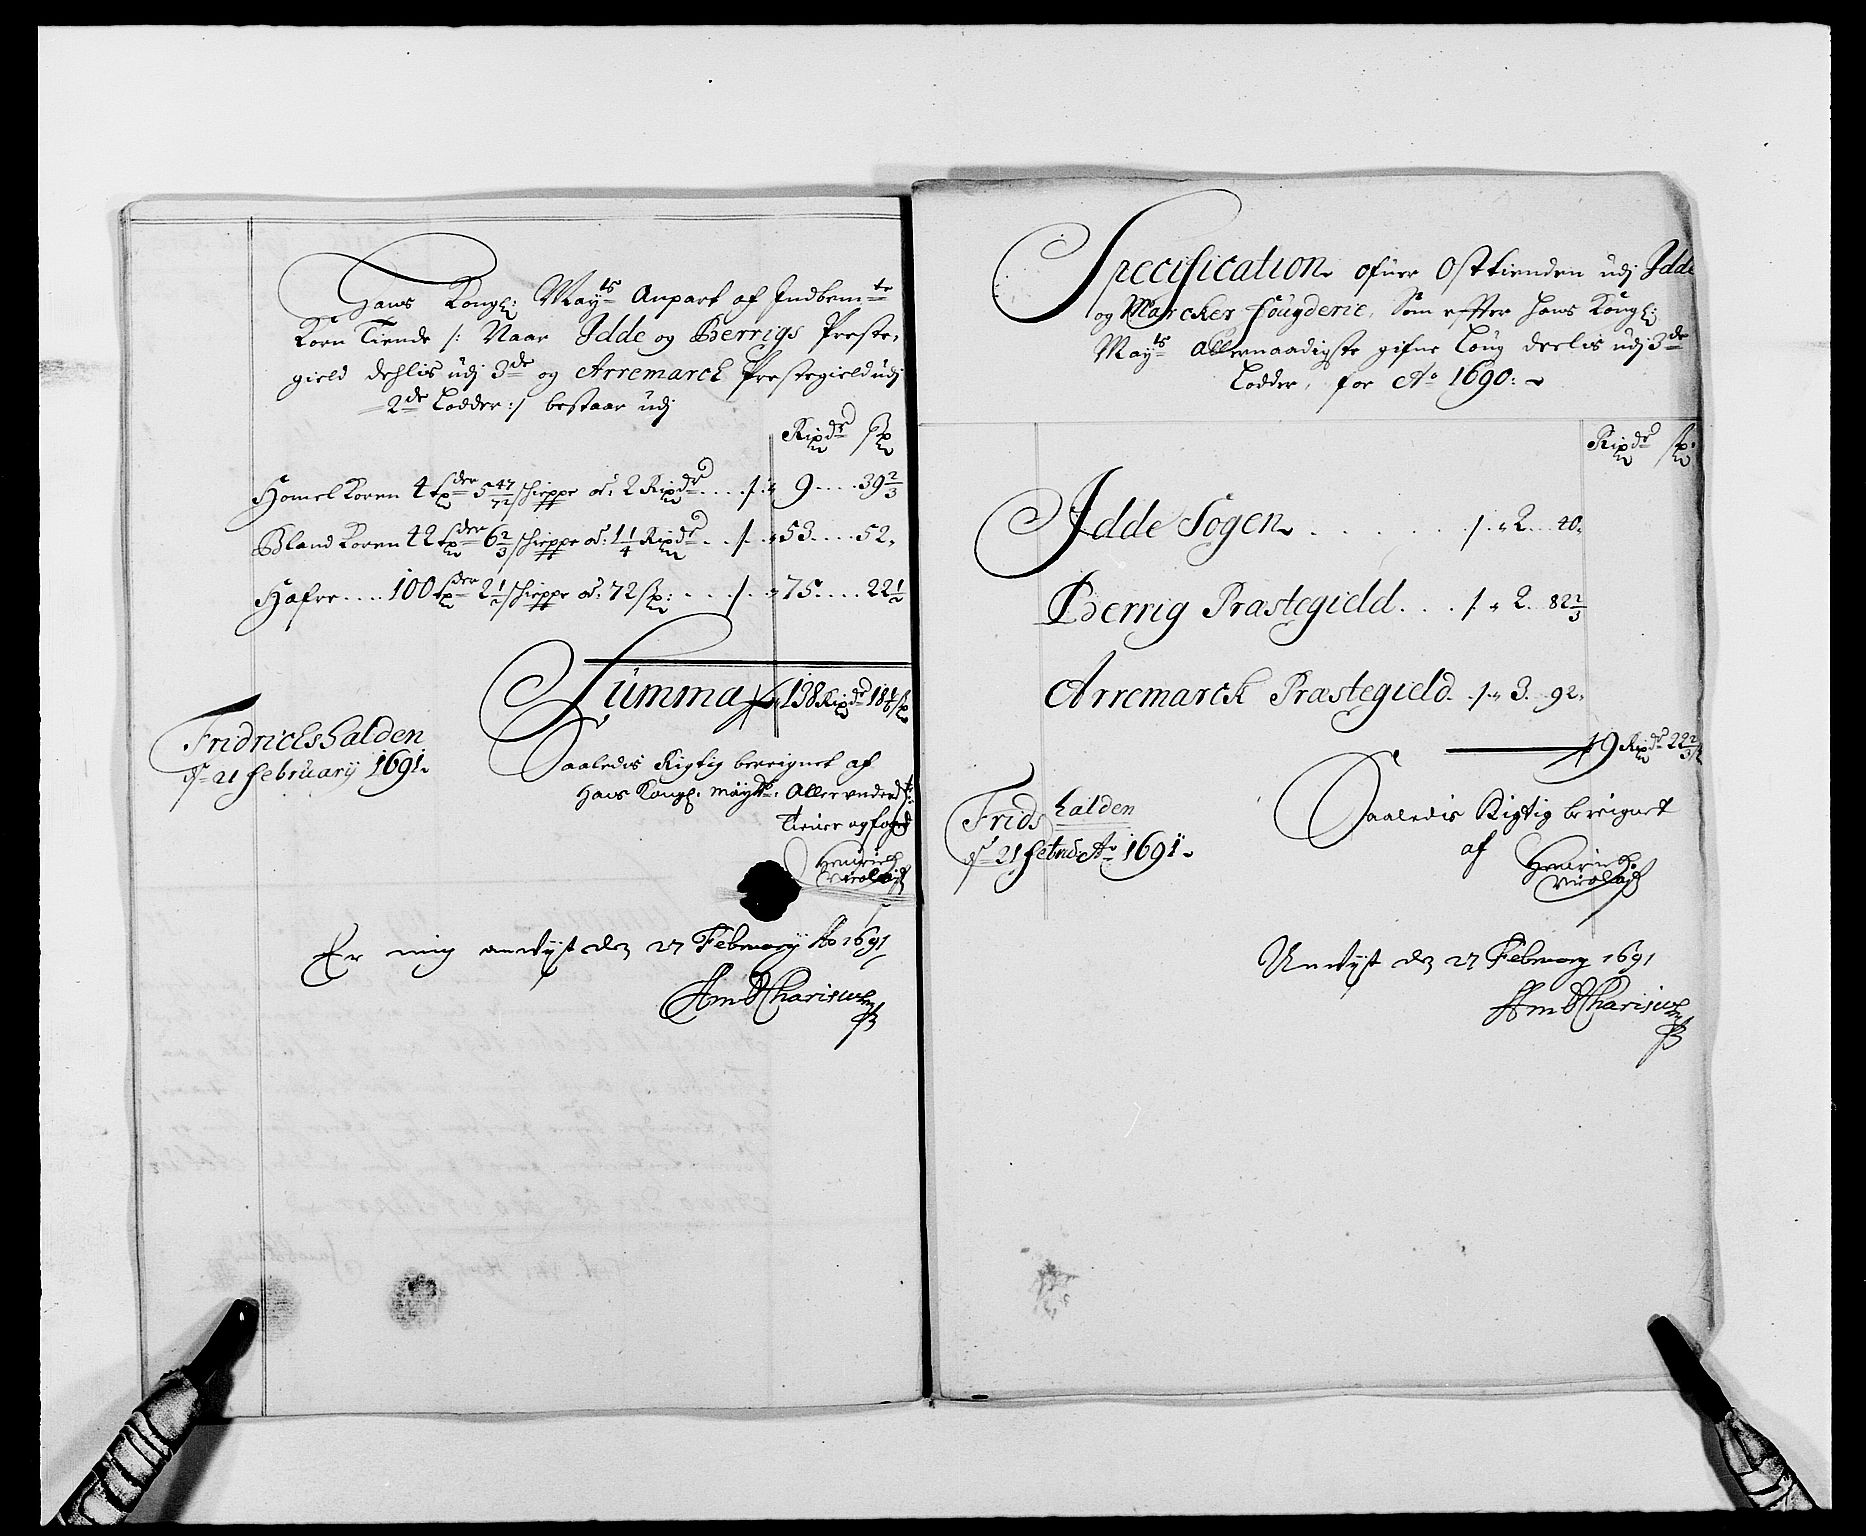 Hans Kongl: May:ts Anpart af Indbem:te
Korn Tiende /: Naar Idde og Berrigs Preste,
gield dehlis udj 3de og Arremarck Prestegield udj
2de Lodder :/ bestaar udj
Rixdr ſk
Homel Koren 4 tdr 5 47/72 schieppe à 2 Rixdr .... /. 9 .... 39 2/3
Bland Koren 42 tdr 6 2/3 schieppe à 1 1/4 Rixdr ... /. 53 .... 52,
Hafre .... 100 tdr 2 1/2 schieppe à 72 sk: ... /. 75 .... 22 1/2
Summa 138 Rixdr 18 1/6 sk
Fridrichshalden
d 21 February 1691.
Saaledis Rigtig bereignet af
Hans Kongl. Mayts. Allerunderd:
Tiener og foged
Henrich
Er mig anvyst den 27 February Ao 1691
Specification ofuer Osttienden udj Idde
og Marcker fougderie, Som effter Hans Kongl:
Mayts Allernaadigste gifne Loug deelis udj 3de
Lodder, for Ao 1690:
Rixdr sk:
Idde Sogen ...... /. 2 .. 40,
Berrig Præstegield ... /. 2 .. 82 2/3
Arremarck Præstegield . /. 3 .. 92,
9 Rixdr 22 2/3 sk
Frids halden
d 21 Febru: Ao 1691.
Saaledis Rigtig bereignet
af Henrich
Anvyst den 27 February 1691